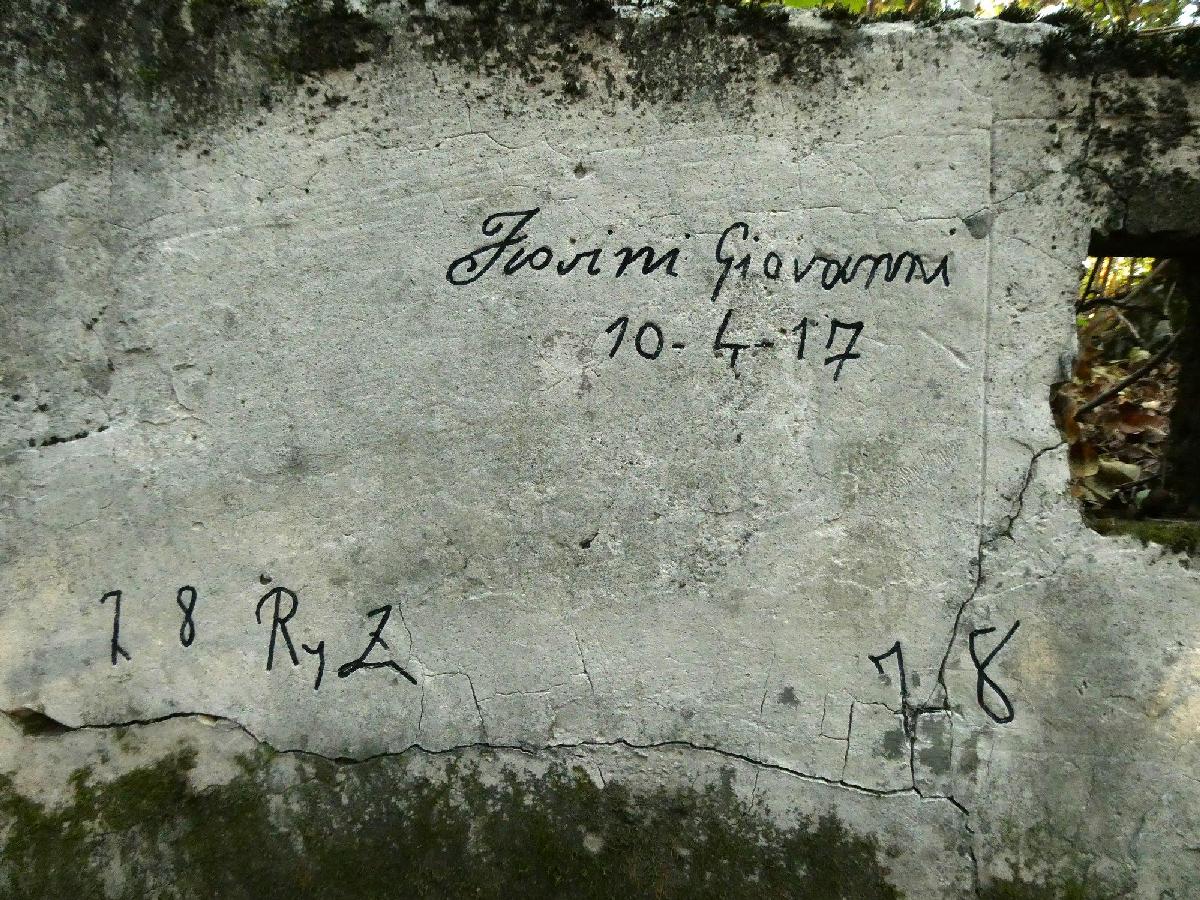 Fiorini Giovanni
10-4-17
18 Ry Z 18